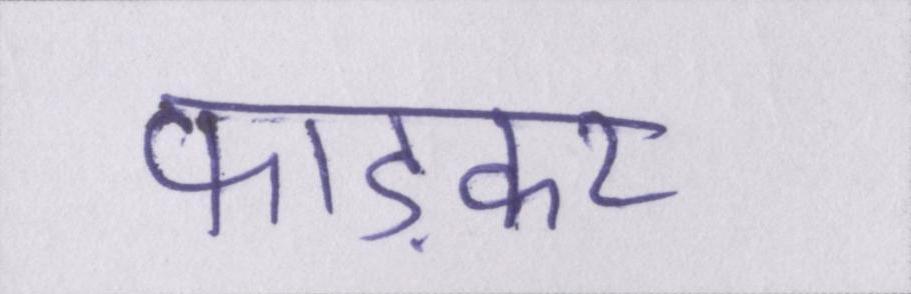 फाड़कर